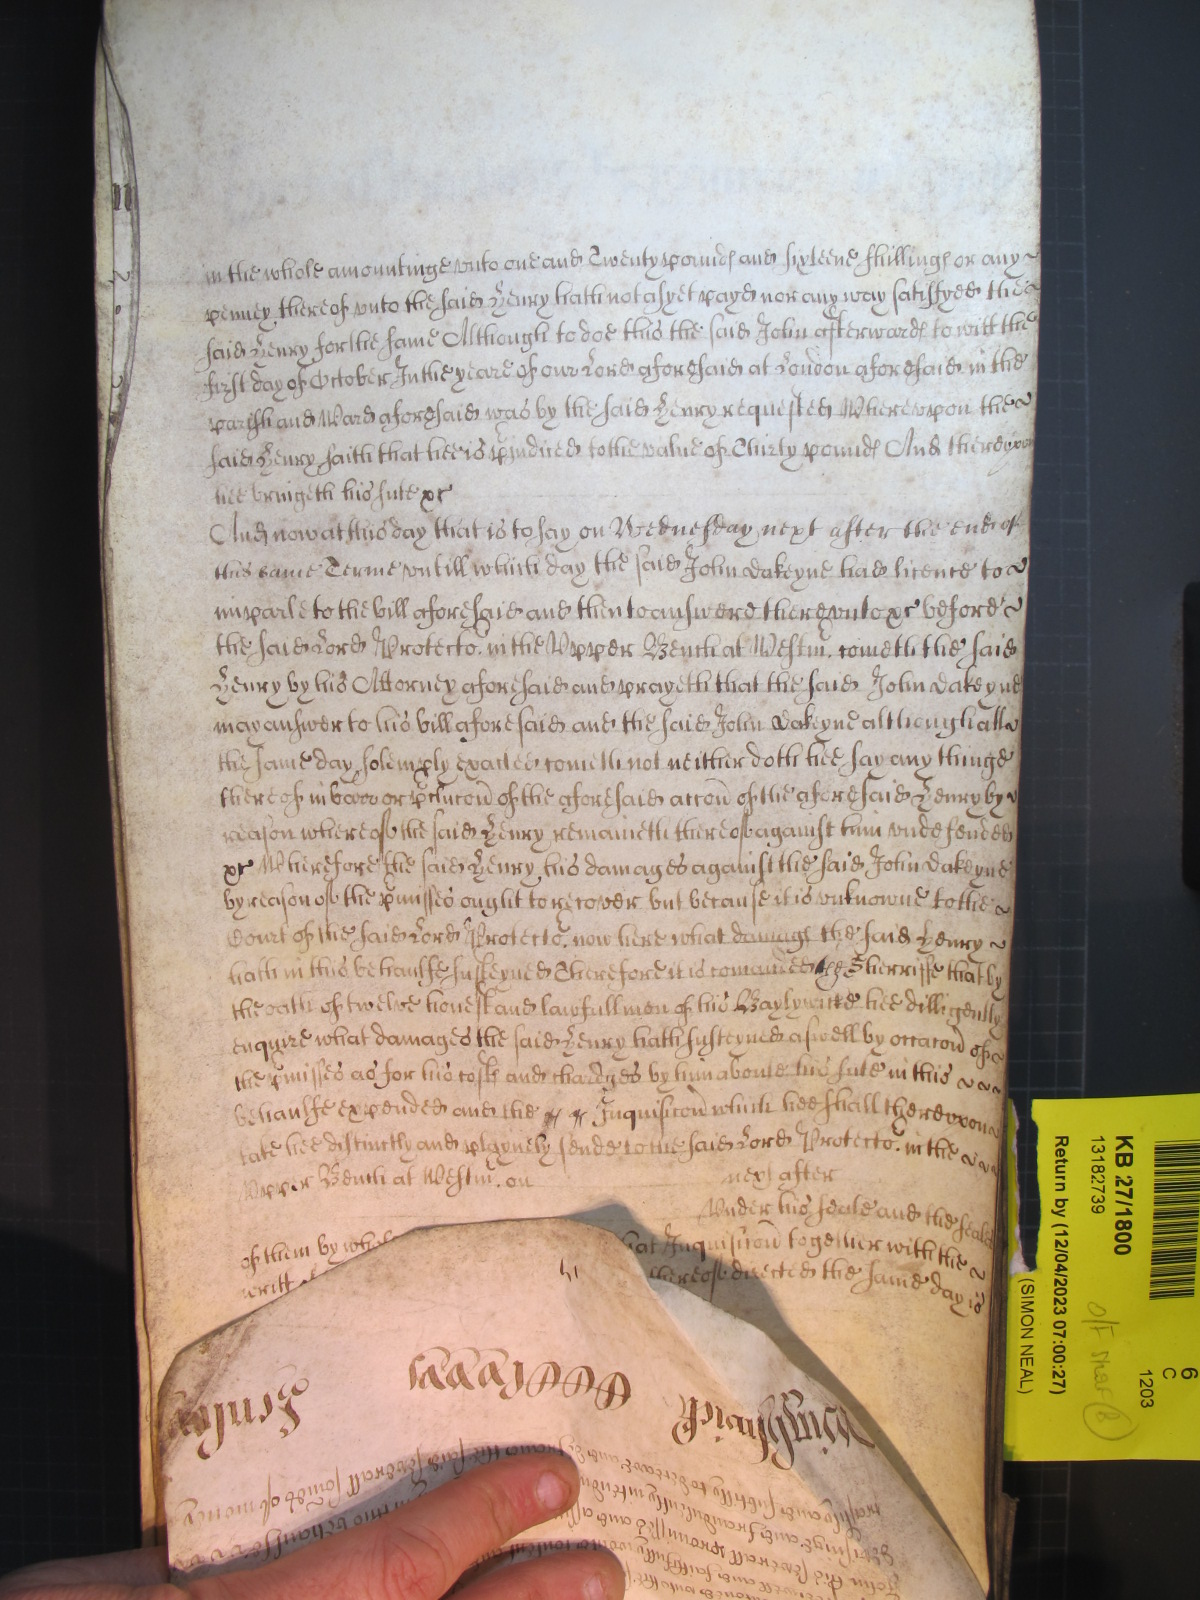 in the whole amountinge unto one and Twenty pounds and sixteene shillings or any
penney thereof unto the said Henry hath not as yet payd nor any way satisfyed the
said Henry for the same Although to doe this the said John afterwards to witt the
first day of October In the yeare of our Lord aforesaid at London aforesaid in the
parish and Ward aforesaid was by the said Henry requested Whereupon the
said Henry saith that hee is p'iudiced to the value of Thirty pounds And thereupon
hee bringeth his sute &c
And now at this day that is to say on Wednesday next after the end of
this same Terme untill which day the said John Dakeyne had licence to
imparle to the bill aforesaid and then to answere thereunto &c before
the said Lord Protector. in the Upper Bench at Westm. cometh the said
Henry by his Attorney aforesaid and prayeth that the said John Dakeyne
may answer to his bill aforesaid and the said John Dakeyne although all
the same day solemply exacted cometh not neither doth hee say any thinge
thereof in barr or p'clucon of the aforesaid accon of the aforesaid Henry by
reason whereof the said Henry remaineth thereof against him undefended
&c Wherefore the said Henry his damages against the said John Dakeyne
by reason of the p'misses ought to recover but because it is unknowne to the
Court of the said Lord Protector. now here what damage the said Henry
hath in this behaulfe susteyned Therefore it is comanded the Sherriffe that by
the oath of twelve honest and lawfull men of his Baylywicke hee dilligently
enquire what damages the said Henry hath susteyned aswell by occacon of
the p'misses as for his costs and chardges by him aboute his sute in this
behaulfe expended and the Inquisicon which hee shall thereupon
take hee distinctly and playnely sende to the said Lord Protector. in the
Upper Bench at Westm. on next after
Under his seale and the seales
of them by whose hat Inquisicon together with the
writt thereof directed the same day is
KB 27/1800
13182739
Return by (12/04/2023 07:00:27)
(SIMON NEAL)
6
C
1203